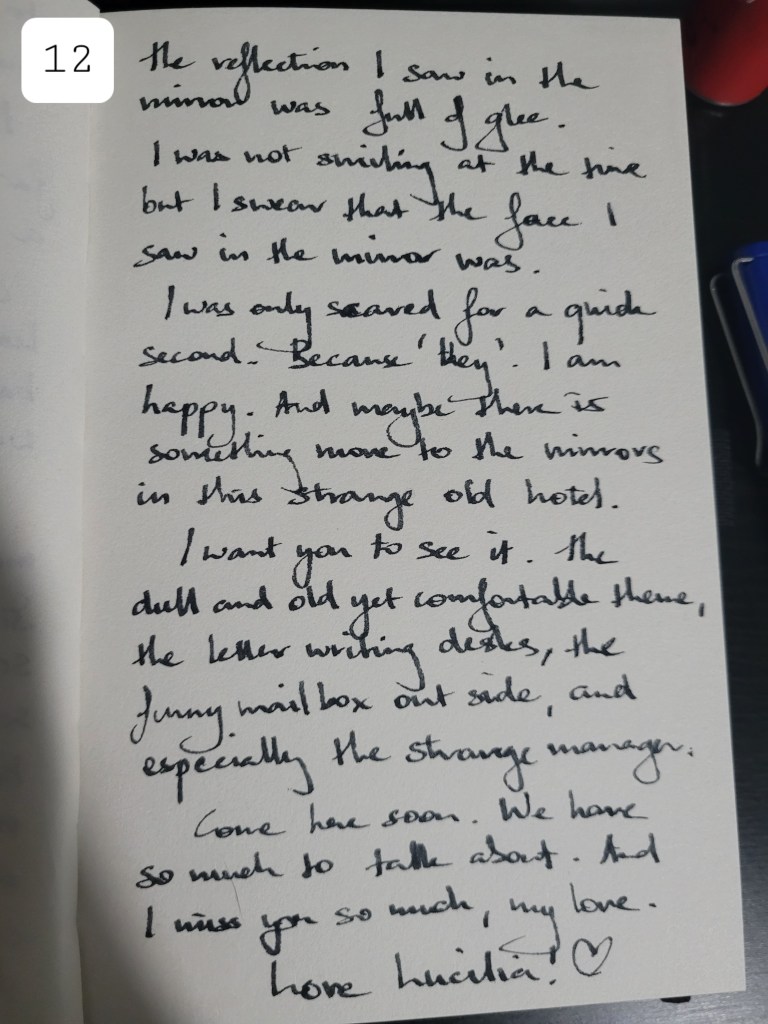 12
the reflection I saw in the
mirror was full of glee.
I was not smiling at the time
but I swear that the face I
saw in the mirror was.
I was only scared for a quick
second. Because 'they'. I am
happy. And maybe there is
something more to the mirrors
in this strange old hotel.
I want you to see it. The
dull and old yet comfortable theme,
the letter writing desks, the
funny mail box out side, and
especially the strange manager.
Come here soon. We have
so much to talk about. And
I miss you so much, my love.
Love Lucilia! ♡